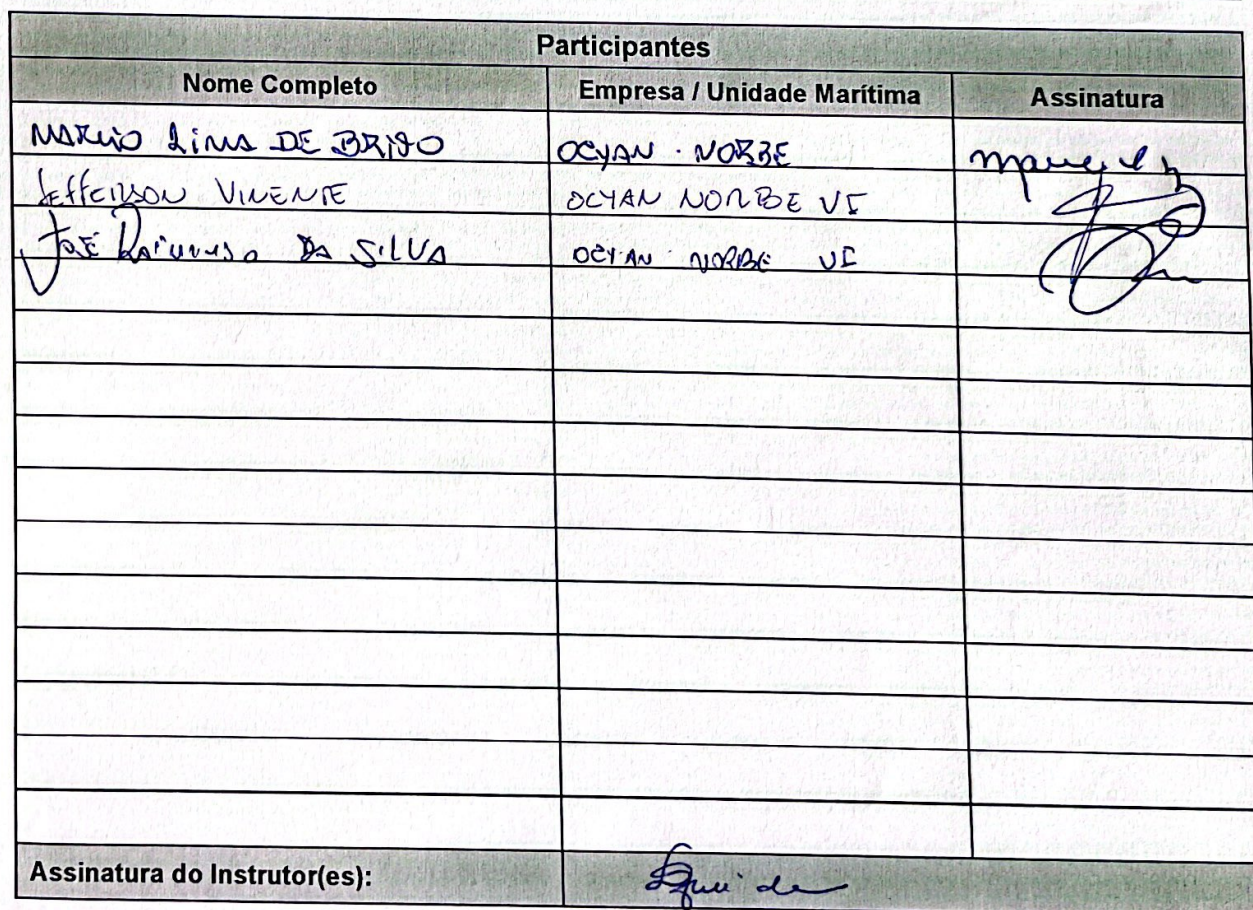 Participantes
Nome Completo Empresa / Unidade Marítima Assinatura
MARCIO LIMA DE BRITO OCYAN NORBE
JEFFERSON VICENTE OCYAN NORBE VI
JOSÉ RAIMUNDO DA SILVA OCYAN NORBE VI
Assinatura do Instrutor(es):